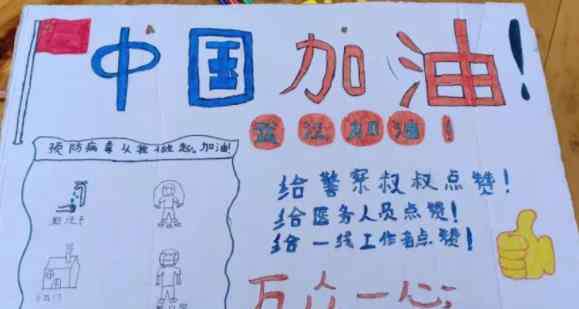 中国加油!
加油!
预防病毒从我做起,加油!
勤洗手
给警察叔叔点赞!
给医务人员点赞!
给一线工作者点赞!
万众一心;